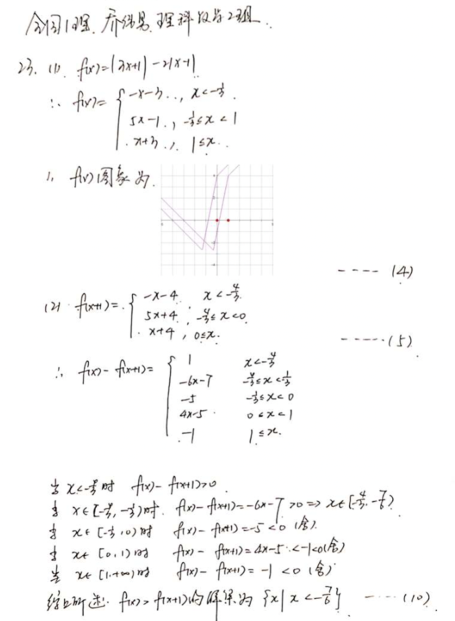 全国1理 乔继昌 理科数学2组
23. (1) f(x)=|3x+1|-2|x-1|
∴ f(x)= { -x-3, x<-1/3
5x-1, -1/3≤x<1
x+3, 1≤x
∴ f(x)图象为
---- (4)
(2) f(x+1)= { -x-4, x<-4/3
5x+4, -4/3≤x<0
x+4, 0≤x
---- (5)
∴ f(x)-f(x+1)= { 1 x<-4/3
-6x-7 -4/3≤x<-1/3
-5 -1/3≤x<0
4x-5 0≤x<1
-1 1≤x
当 x<-4/3 时 f(x)-f(x+1)>0
当 x∈[-4/3,-1/3)时 f(x)-f(x+1)=-6x-7>0 => x∈[-4/3,-7/6)
当 x∈[-1/3,0)时 f(x)-f(x+1)=-5<0 (舍)
当 x∈[0,1)时 f(x)-f(x+1)=4x-5<-1<0(舍)
当 x∈[1,+∞)时 f(x)-f(x+1)=-1<0 (舍)
综上所述 f(x)>f(x+1)的解集为 {x|x<-7/6} ---- (10)